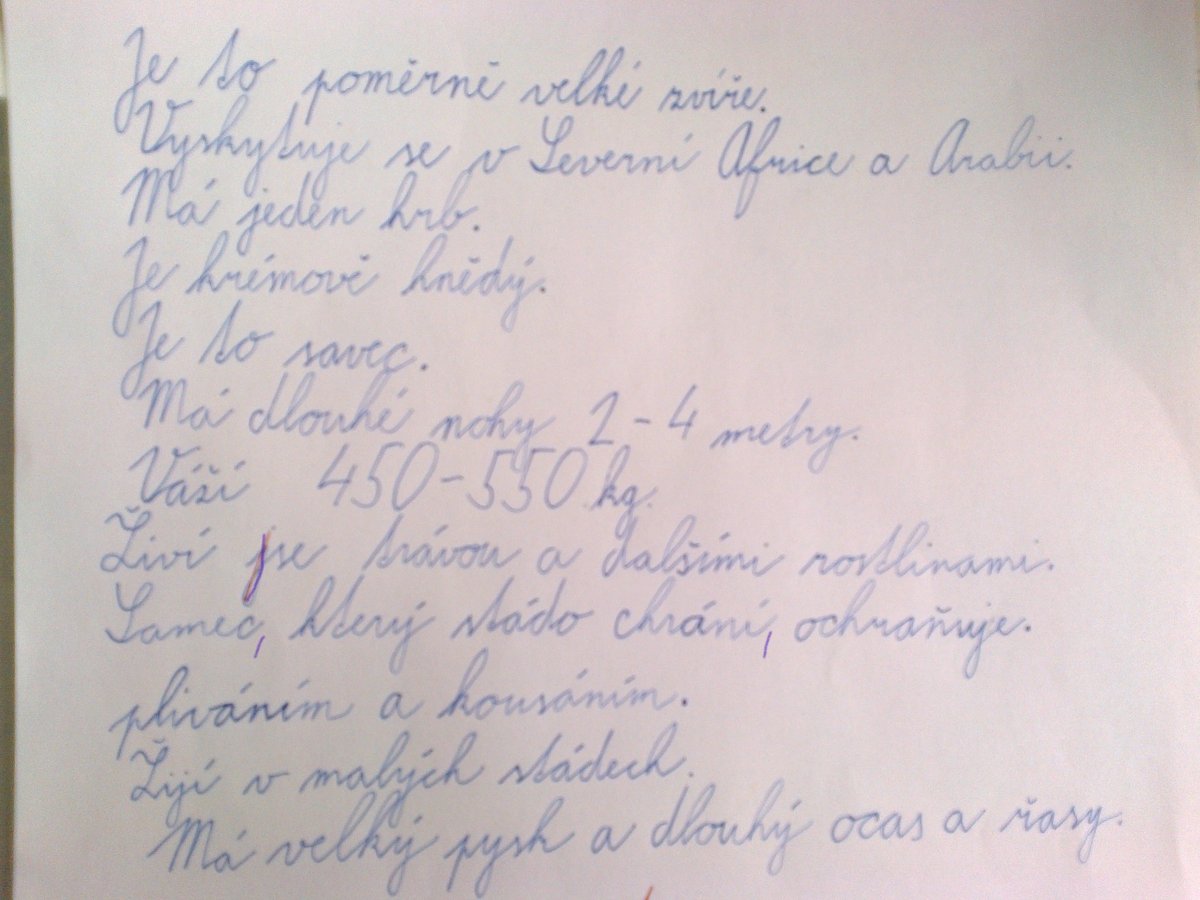 Je to poměrně velké zvíře.
Vyskytuje se v Severní Africe a Arabii.
Má jeden hrb.
Je krémově hnědý.
Je to savec.
Má dlouhé nohy 2-4 metry.
Váží 450-550 kg.
Živí se trávou a dalšími rostlinami.
Samec, který stádo chrání, ochraňuje.
pliváním a kousáním.
Žijí v malých stádech.
Má velký pysk a dlouhý ocas a řasy.